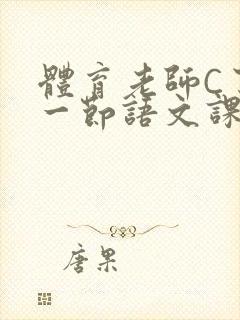 體育老師C
一節語文課
唐果